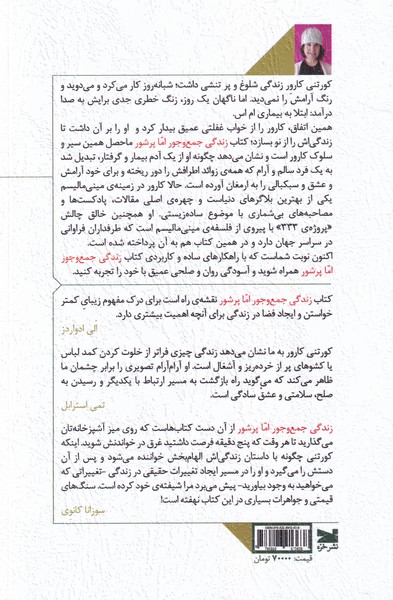 کورتنی کارور زندگی شلوغ و پر تنشی داشت؛ شبانه‌روز کار می‌کرد و می‌دوید و
رنگ آرامش را نمی‌دید. اما ناگهان یک روز، زنگ خطری جدی برایش به صدا
درآمد: ابتلا به بیماری ام اس.
همین اتفاق، کارور را از خواب غفلتی عمیق بیدار کرد و او را بر آن داشت تا
زندگی‌اش را از نو بسازد؛ کتاب زندگی جمع‌وجور امّا پرشور ماحصل همین سیر و
سلوک کارور است و نشان می‌دهد چگونه او از یک آدم بیمار و گرفتار، تبدیل شد
به یک فرد سالم و آرام که همه‌ی زوائد اطرافش را دور ریخته و برای خود آرامش
و عشق و سبکبالی را به ارمغان آورده است. حالا کارور در زمینه‌ی مینی‌مالیسم
یکی از بهترین بلاگرهای دنیاست و چهره‌ی اصلی مقالات، پادکست‌ها و
مصاحبه‌های بی‌شماری با موضوع ساده‌زیستی. او همچنین خالق چالش
«پروژه‌ی ۳۳۳» با پیروی از فلسفه‌ی مینی‌مالیسم است که طرفداران فراوانی
در سراسر جهان دارد و در همین کتاب هم به آن پرداخته شده است.
اکنون نوبت شماست که با راهکارهای ساده و کاربردی کتاب زندگی جمع‌وجور
امّا پرشور همراه شوید و آسودگی روان و صلحی عمیق با خود را تجربه کنید.
کتاب زندگی جمع‌وجور امّا پرشور نقشه‌ی راه است برای درک مفهوم زیبایِ کمتر
خواستن و ایجاد فضا در زندگی برای آنچه اهمیت بیشتری دارد.
الی ادواردز
کورتنی کارور به ما نشان می‌دهد زندگی چیزی فراتر از خلوت کردن کمد لباس
یا کشوهای پر از خرده‌ریز و آشغال است. او آرام‌آرام تصویری را برابر چشمان ما
ظاهر می‌کند که می‌گوید راه بازگشت به مسیر ارتباط با یکدیگر و رسیدن به
صلح، سلامتی و عشق سادگی است.
تمی استرابل
زندگی جمع‌وجور امّا پرشور از آن دست کتاب‌هاست که روی میز آشپزخانه‌تان
می‌گذارید تا هر وقت که پنج دقیقه فرصت داشتید غرق در خواندنش شوید. اینکه
کورتنی چگونه با داستان زندگی‌اش الهام‌بخش خواننده می‌شود و پس از آن
دستش را می‌گیرد و او را در مسیر ایجاد تغییرات حقیقی در زندگی –تغییراتی که
می‌خواهید به وجود بیاورید– پیش می‌برد مرا شیفته‌ی خود کرده است. سنگ‌های
قیمتی و جواهرات بسیاری در این کتاب نهفته است!
سوزانا کانوی
نشر خزه
قیمت: ۷۰۰۰۰ تومان